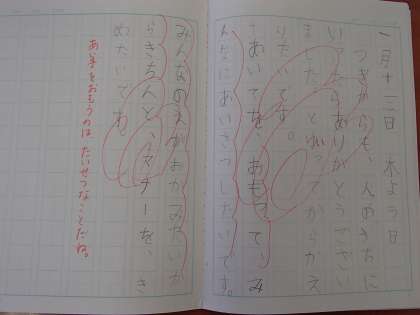 一月十三日 木よう日
つぎからも、人のうちに
いったらありがとうござい
ましたといってからかえ
りたいです。
あいてを、おもって、み
んなにあいさつしたいです。
みんなの
らきちんと、マナーを、き
めたいです。
あい手をおもうのは、たいせつなことだね。